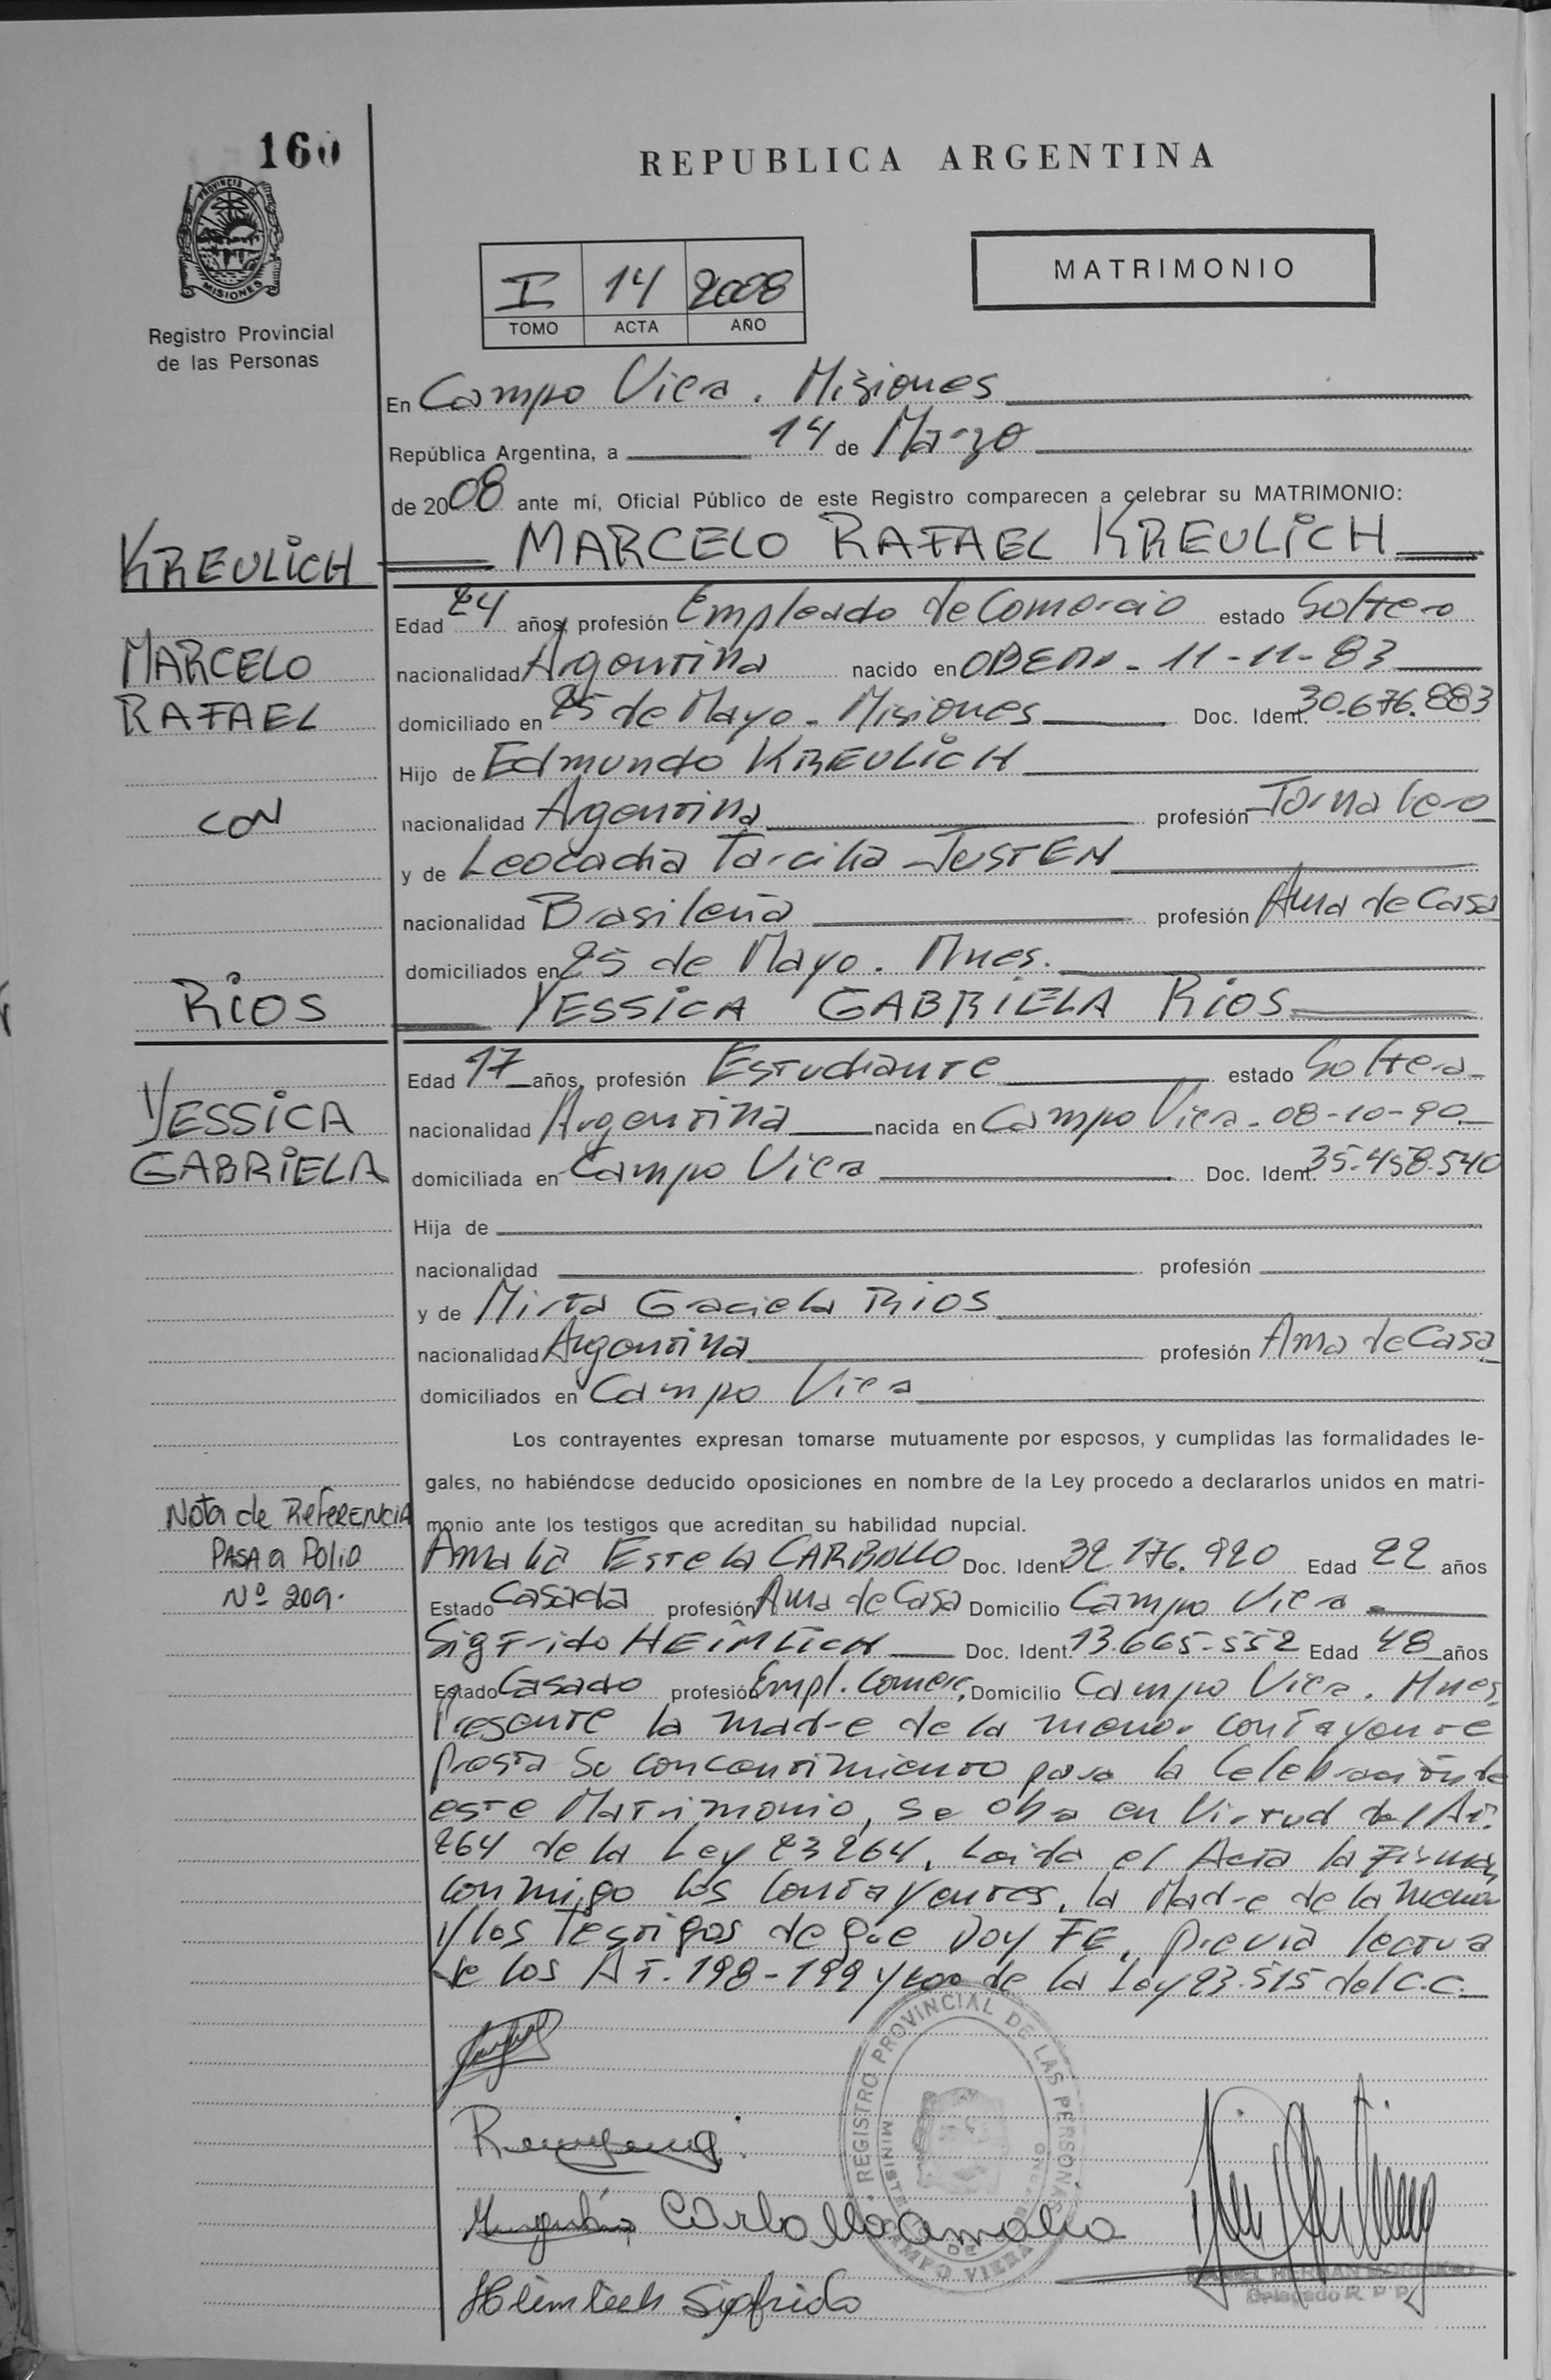 160
PROVINCIA DE
MISIONES
Registro Provincial
de las Personas
REPUBLICA ARGENTINA
I 14 2008
TOMO ACTA AÑO
MATRIMONIO
En Campo Viera . Misiones
República Argentina, a 14 de Marzo
de 2008 ante mí, Oficial Público de este Registro comparecen a celebrar su MATRIMONIO:
KREULICH
MARCELO RAFAEL KREULICH
Edad 24 años, profesión Empleado de Comercio estado Soltero
MARCELO
nacionalidad Argentina nacido en OBERA - 11-11-83
RAFAEL
domiciliado en 25 de Mayo - Misiones Doc. Ident. 30.676.883
Hijo de Edmundo KREULICH
CON
nacionalidad Argentina profesión Jornalero
y de Leocadia Tarcilia JUSTEN
nacionalidad Brasileña profesión Ama de Casa
domiciliados en 25 de Mayo . Mnes.
RIOS
YESSICA GABRIELA RIOS
Edad 17 años, profesión Estudiante estado Soltera
YESSICA
nacionalidad Argentina nacida en Campo Viera - 08-10-90
GABRIELA
domiciliada en Campo Viera Doc. Ident. 35.458.540
Hija de
nacionalidad profesión
y de Mirta Graciela RIOS
nacionalidad Argentina profesión Ama de Casa
domiciliados en Campo Viera
Los contrayentes expresan tomarse mutuamente por esposos, y cumplidas las formalidades le-
gales, no habiéndose deducido oposiciones en nombre de la Ley procedo a declararlos unidos en matri-
monio ante los testigos que acreditan su habilidad nupcial.
Nota de REFERENCIA
PASA a Folio
Nº 209.
Amalia Estela CARBALLO Doc. Ident. 32.176.920 Edad 22 años
Estado Casada profesión Ama de Casa Domicilio Campo Viera
Sigfrido HEIMLICH Doc. Ident. 13.665.552 Edad 48 años
Estado Casado profesión Empl. Comerc. Domicilio Campo Viera . Mnes.
Presente la madre de la menor contrayente
presta su concentimiento para la Celebración de
este Matrimonio, se obra en Virtud del Art.
264 de la Ley 23264. Leida el Acta la Firman
conmigo los Contrayentes, la Madre de la menor
y los Testigos de que Doy FE, previa lectura
de los Art. 198-199 y 200 de la Ley 23.515 del C.C.
REGISTRO PROVINCIAL DE LAS PERSONAS
CAMPO VIERA
Carballo Amalia
Heimlich Sigfrido
Delegado R. P. P.